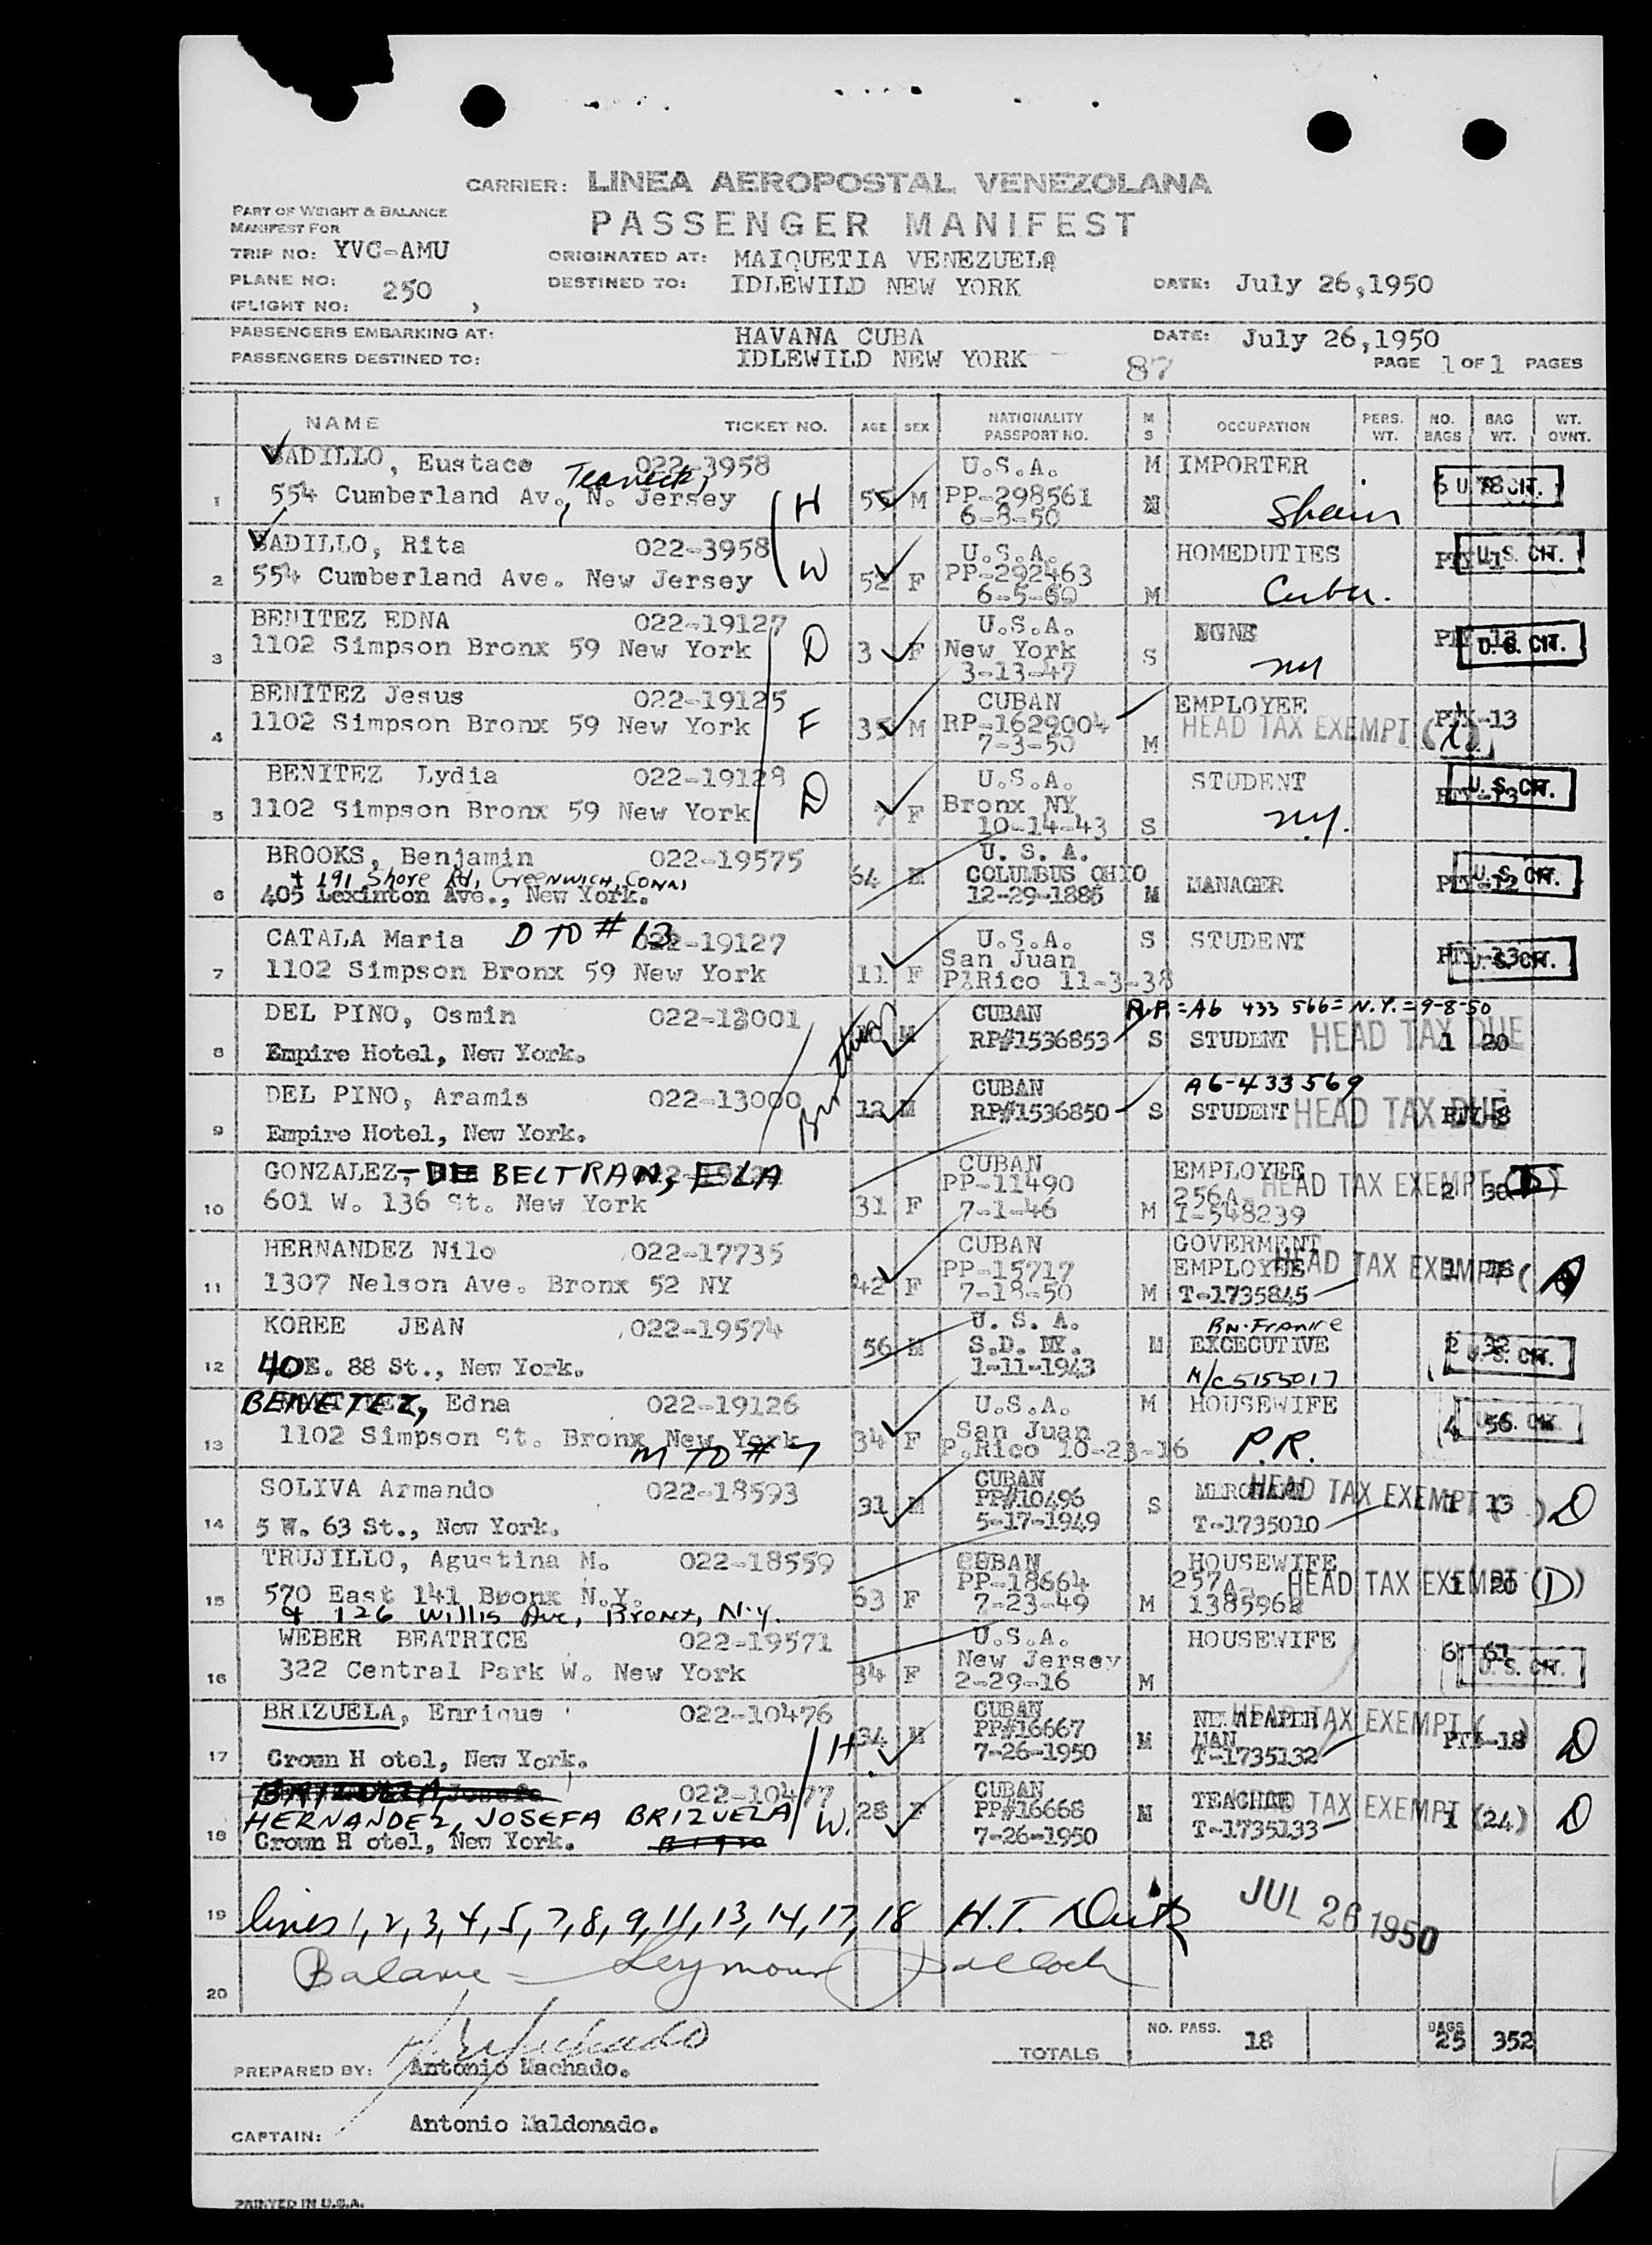 CARRIER: LINEA AEROPOSTAL VENEZOLANA
PART OF WEIGHT & BALANCE
MANIFEST FOR
PASSENGER MANIFEST
TRIP NO: YVC-AMU
ORIGINATED AT: MAIQUETIA VENEZUELA
PLANE NO: 250
DESTINED TO: IDLEWILD NEW YORK
DATE: July 26,1950
(FLIGHT NO: )
PASSENGERS EMBARKING AT: HAVANA CUBA
DATE: July 26,1950
PASSENGERS DESTINED TO: IDLEWILD NEW YORK
87
PAGE 1 OF 1 PAGES
NAME TICKET NO. AGE SEX NATIONALITY PASSPORT NO. M S OCCUPATION PERS. WT. NO. BAGS BAG WT. WT. OVNT.
BADILLO, Eustace 022-3958 U.S.A. M IMPORTER
Teaneck,
1 554 Cumberland Av., N. Jersey H 55 M PP-298561 6 78 U.S. CIT.
6-8-50 Spain
BADILLO, Rita 022-3958 U.S.A. HOMEDUTIES
2 554 Cumberland Ave. New Jersey W 52 F PP-292463 U.S. CIT.
6-5-50 M Cuba.
BENITEZ EDNA 022-19127 U.S.A. NONE
3 1102 Simpson Bronx 59 New York D 3 F New York S U.S. CIT.
3-13-47 NY
BENITEZ Jesus 022-19125 CUBAN EMPLOYEE
4 1102 Simpson Bronx 59 New York F 35 M RP-1629004 HEAD TAX EXEMPT PTY-13
7-3-50 M
BENITEZ Lydia 022-19128 U.S.A. STUDENT
5 1102 Simpson Bronx 59 New York D 7 F Bronx NY PTY-13 U.S. CIT.
10-14-43 S N.Y.
BROOKS, Benjamin 022-19575 U. S. A.
+ 191 Shore Rd, Greenwich, Conn
6 405 Lexinton Ave., New York. 64 M COLUMBUS OHIO MANAGER PTY-12 U.S. CIT.
12-29-1885 M
CATALA Maria D TO # 13 022-19127 U.S.A. S STUDENT
7 1102 Simpson Bronx 59 New York 11 F San Juan PTY-13 U.S. CIT.
P.Rico 11-3-38
DEL PINO, Osmin 022-13001 CUBAN R.P.=A6 433 566=N.Y.=9-8-50
8 Empire Hotel, New York. M RP#1536853 S STUDENT HEAD TAX DUE 1 20
Brothers
DEL PINO, Aramis 022-13000 CUBAN A6-433569
9 Empire Hotel, New York. 12 M RP#1536850 S STUDENT HEAD TAX DUE
GONZALEZ- DE BELTRAN, ELA CUBAN EMPLOYEE
10 601 W. 136 St. New York 31 F PP-11490 256A- HEAD TAX EXEMPT (D) 2 30
7-1-46 M I-548239
HERNANDEZ Nilo 022-17735 CUBAN GOVERMENT
11 1307 Nelson Ave. Bronx 52 NY 42 F PP-15717 EMPLOYEE HEAD TAX EXEMPT
7-18-50 M T-1735845
KOREE JEAN 022-19574 U. S. A. BN. France
12 40 E. 88 St., New York. 56 M S.D. NY. M EXCECUTIVE 2 32 U.S. CIT.
1-11-1943 N/C 5155017
BENETEZ, Edna 022-19126 U.S.A. M HOUSEWIFE
13 1102 Simpson St. Bronx New York 34 F San Juan 4 56 U.S. CIT.
M TO # 7 P.Rico 10-23-16 P.R.
SOLIVA Armando 022-18593 CUBAN
14 5 W. 63 St., New York. 31 M PP#10496 S HEAD TAX EXEMPT 1 13 D
5-17-1949 T-1735010
TRUJILLO, Agustina M. 022-18559 CUBAN HOUSEWIFE
15 570 East 141 Bronx N.Y. 63 F PP-18664 257A- HEAD TAX EXEMPT (D) 1 20
& 126 Willis Ave, Bronx, N.Y. 7-23-49 M
WEBER BEATRICE 022-19571 U.S.A. HOUSEWIFE
16 322 Central Park W. New York 34 F New Jersey 6 61 U.S. CIT.
2-29-16 M
BRIZUELA, Enrique 022-10476 CUBAN HEAD TAX EXEMPT
17 Crown H otel, New York. H 34 M PP#16667 M MAN D
7-26-1950 T-1735132
022-10477 CUBAN TEACHER HEAD TAX EXEMPT
HERNANDEZ, JOSEFA BRIZUELA W. 28 F PP#16668 M 1 (24) D
18 Crown H otel, New York. 7-26-1950 T-1735133
19 lines 1, 2, 3, 4, 5, 7, 8, 9, 11, 13, 14, 17, 18 JUL 26 1950
20 Balance - Seymour
TOTALS NO. PASS. 18 BAGS 25 352
PREPARED BY: Antonio Machado.
CAPTAIN: Antonio Maldonado.
PRINTED IN U.S.A.